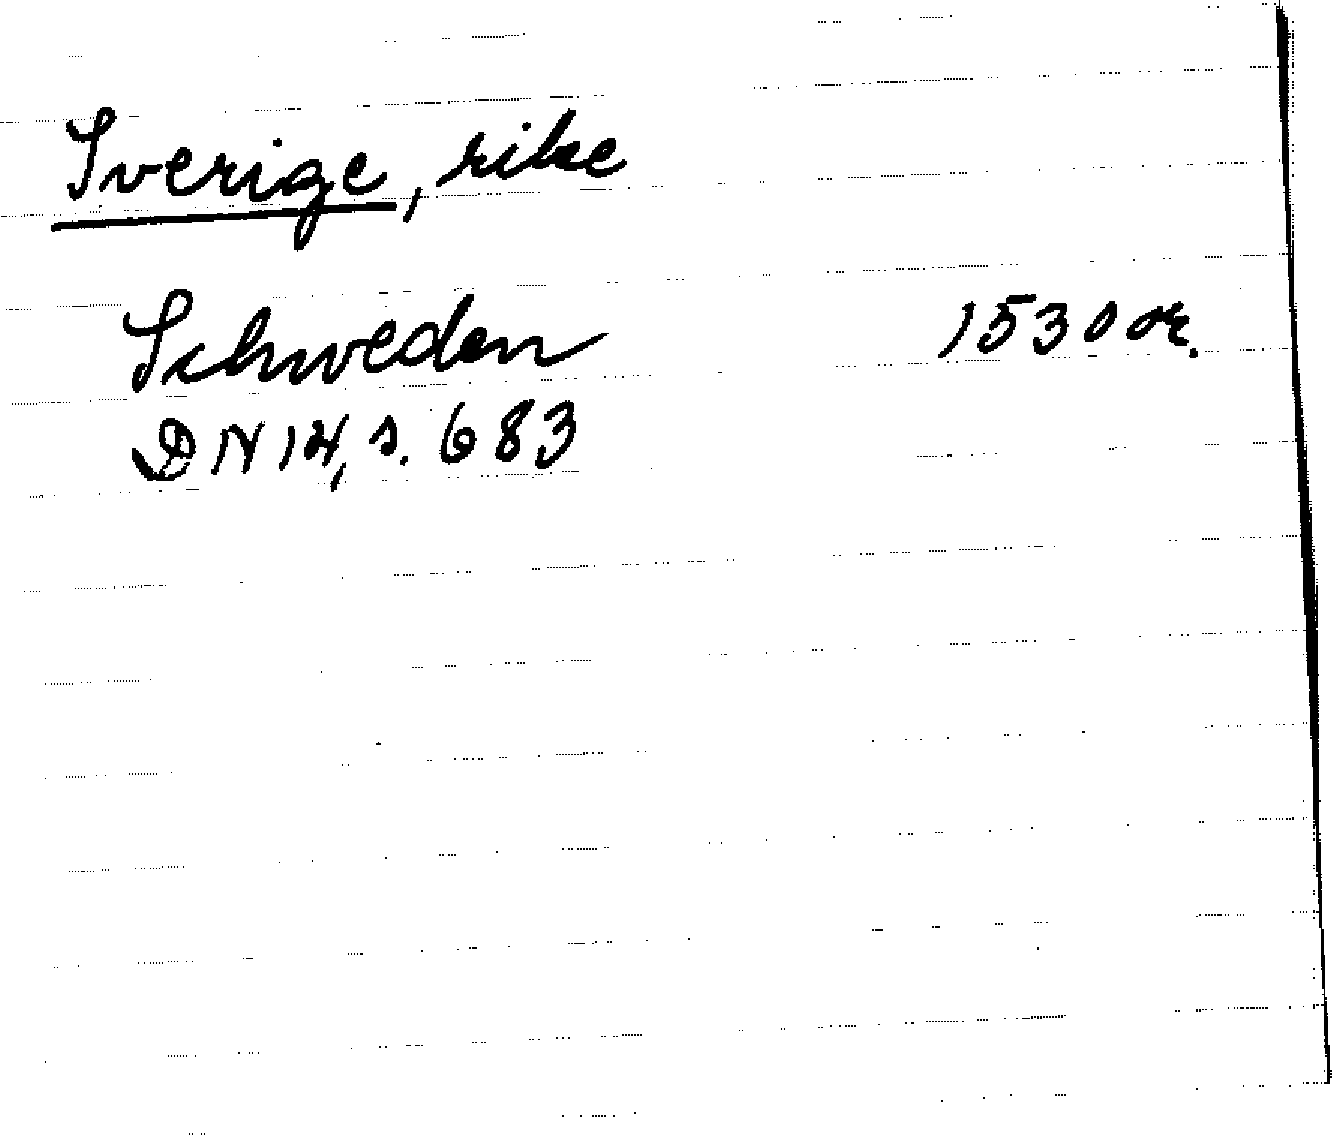 Sverige, rike
Schweden 1530 or.
DN 14, s. 683